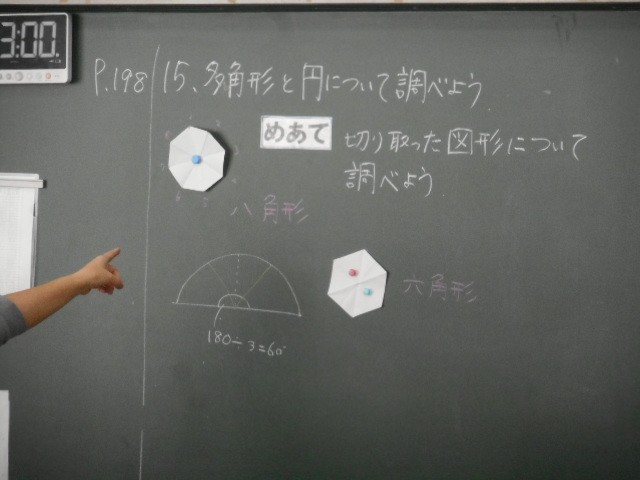 3:00
P.198
15、多角形と円について調べよう
めあて
切り取った図形について
調べよう
八角形
六角形
180÷3=60°